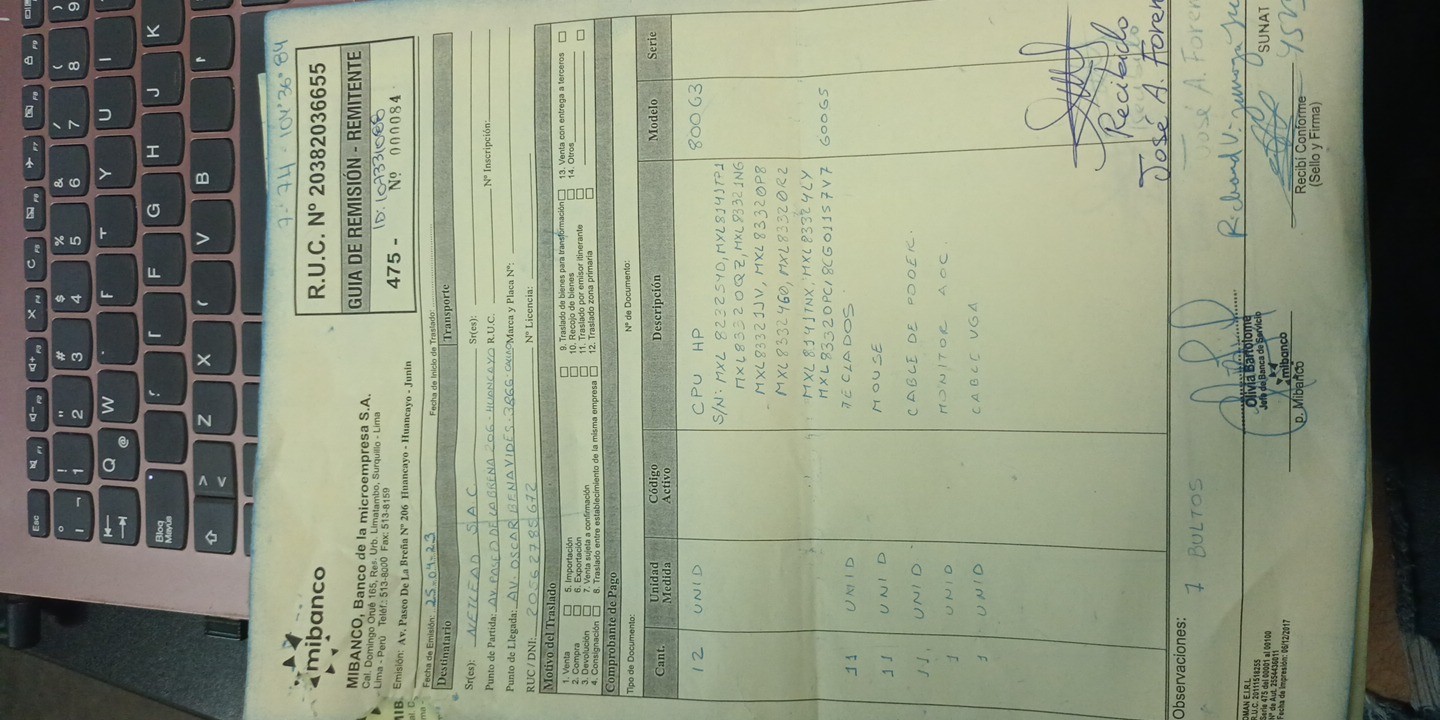 7-74-104'36"84
mibanco
MIBANCO, Banco de la microempresa S.A.
Cal. Domingo Orué 165, Res. Urb. Limatambo, Surquillo - Lima
Lima - Perú Teléf.: 513-8000 Fax: 513-8159
Emisión: Av. Paseo De La Breña Nº 206 Huancayo - Huancayo - Junín
R.U.C. Nº 20382036655
GUIA DE REMISIÓN - REMITENTE
475 - Nº 000084
Fecha de Emisión: 25-04-23 Fecha de Inicio de Traslado:
Destinatario Transporte
Sr(es): NETLEAD S.A.C Sr(es):
Punto de Partida: AV. PASEO DE LA BREÑA 206 - HUANCAYO R.U.C. Nº Inscripción:
Punto de Llegada: AV. OSCAR BENAVIDES 3866 Marca y Placa Nº:
RUC / DNI: 20562785672 Nº Licencia:
Motivo del Traslado
1. Venta 5. Importación 9. Traslado de bienes para transformación 13. Venta con entrega a terceros
2. Compra 6. Exportación 10. Recojo de bienes 14. Otros
3. Devolución 7. Venta sujeta a confirmación 11. Traslado por emisor itinerante
4. Consignación 8. Traslado entre establecimiento de la misma empresa 12. Traslado zona primaria
Comprobante de Pago
Tipo de Documento: Nº de Documento:
Cant. Unidad Medida Código Activo Descripción Modelo Serie
12 UNID CPU HP 800G3
S/N: MXL8232S4D, MXL8141TPJ
MXL83320QZ, MXL83321NG
MXL83321JV, MXL83320P8
MXL8332460, MXL83320R2
MXL8141TNX, MXL83324LY
MXL83320PC, 8CG01157V7 600G5
11 UNID TECLADOS
11 UNID MOUSE
11 UNID CABLE DE PODER.
1 UNID MONITOR AOC.
1 UNID CABLE VGA
Recibido
José A.
Observaciones: 7 BULTOS
Olivia Bartolome
Jefe de Banca de Servicio
mibanco
p. Mibanco
Recibí Conforme
(Sello y Firma)
SUNAT
R.U.C. 20111518355
Serie 475 del 00001 al 00100
Nº de Aut. 2554436011
Fecha de Impresión: 06/12/2017
Esc F1 F2 F3 F4
Bloq Mayús
Q W T Y U I
F G H J K
Z X V B